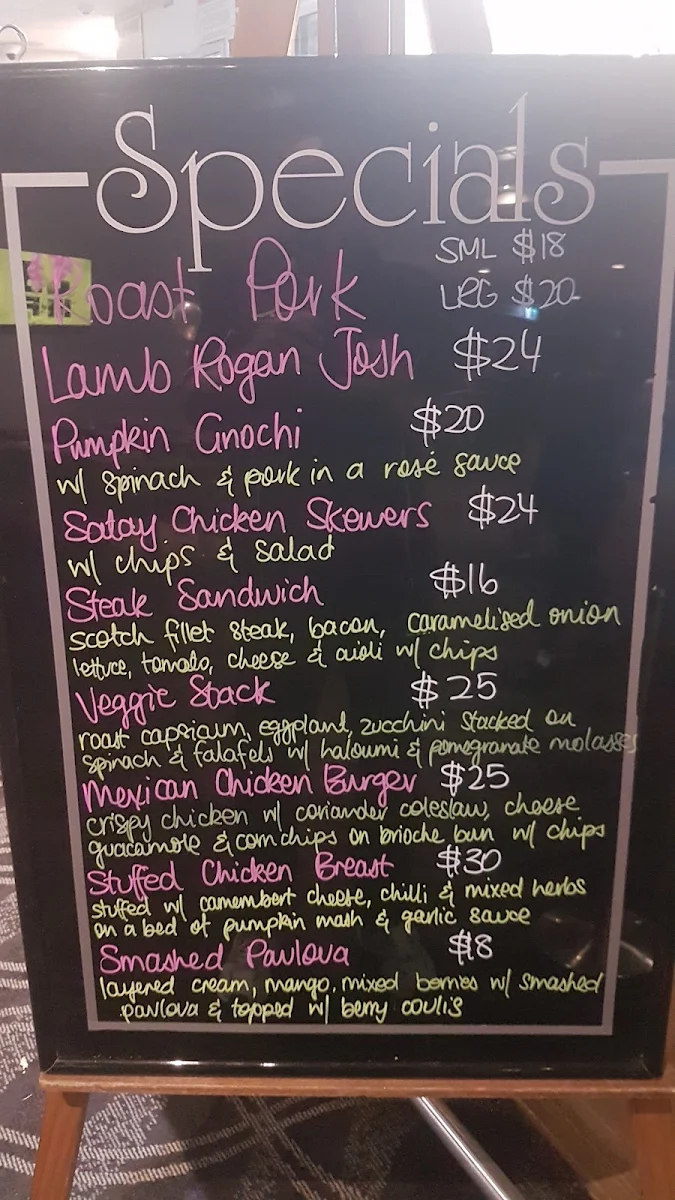 Specials
Roast Pork SML $18
LRG $20
Lamb Rogan Josh $24
Pumpkin Gnochi $20
w/ spinach & pork in a rosé sauce
Satay Chicken Skewers $24
w/ chips & salad
Steak Sandwich $16
scotch fillet steak, bacon, caramelised onion
lettuce, tomato, cheese & aioli w/ chips
Veggie Stack $25
roast capsicum, eggplant, zucchini stacked on
spinach & falafels w/ haloumi & pomegranate molasses
Mexican Chicken Burger $25
crispy chicken w/ coriander coleslaw, cheese
guacamole & cornchips on brioche bun w/ chips
Stuffed Chicken Breast $30
stuffed w/ camembert cheese, chilli & mixed herbs
on a bed of pumpkin mash & garlic sauce
Smashed Pavlova $18
layered cream, mango, mixed berries w/ smashed
pavlova & topped w/ berry coulis